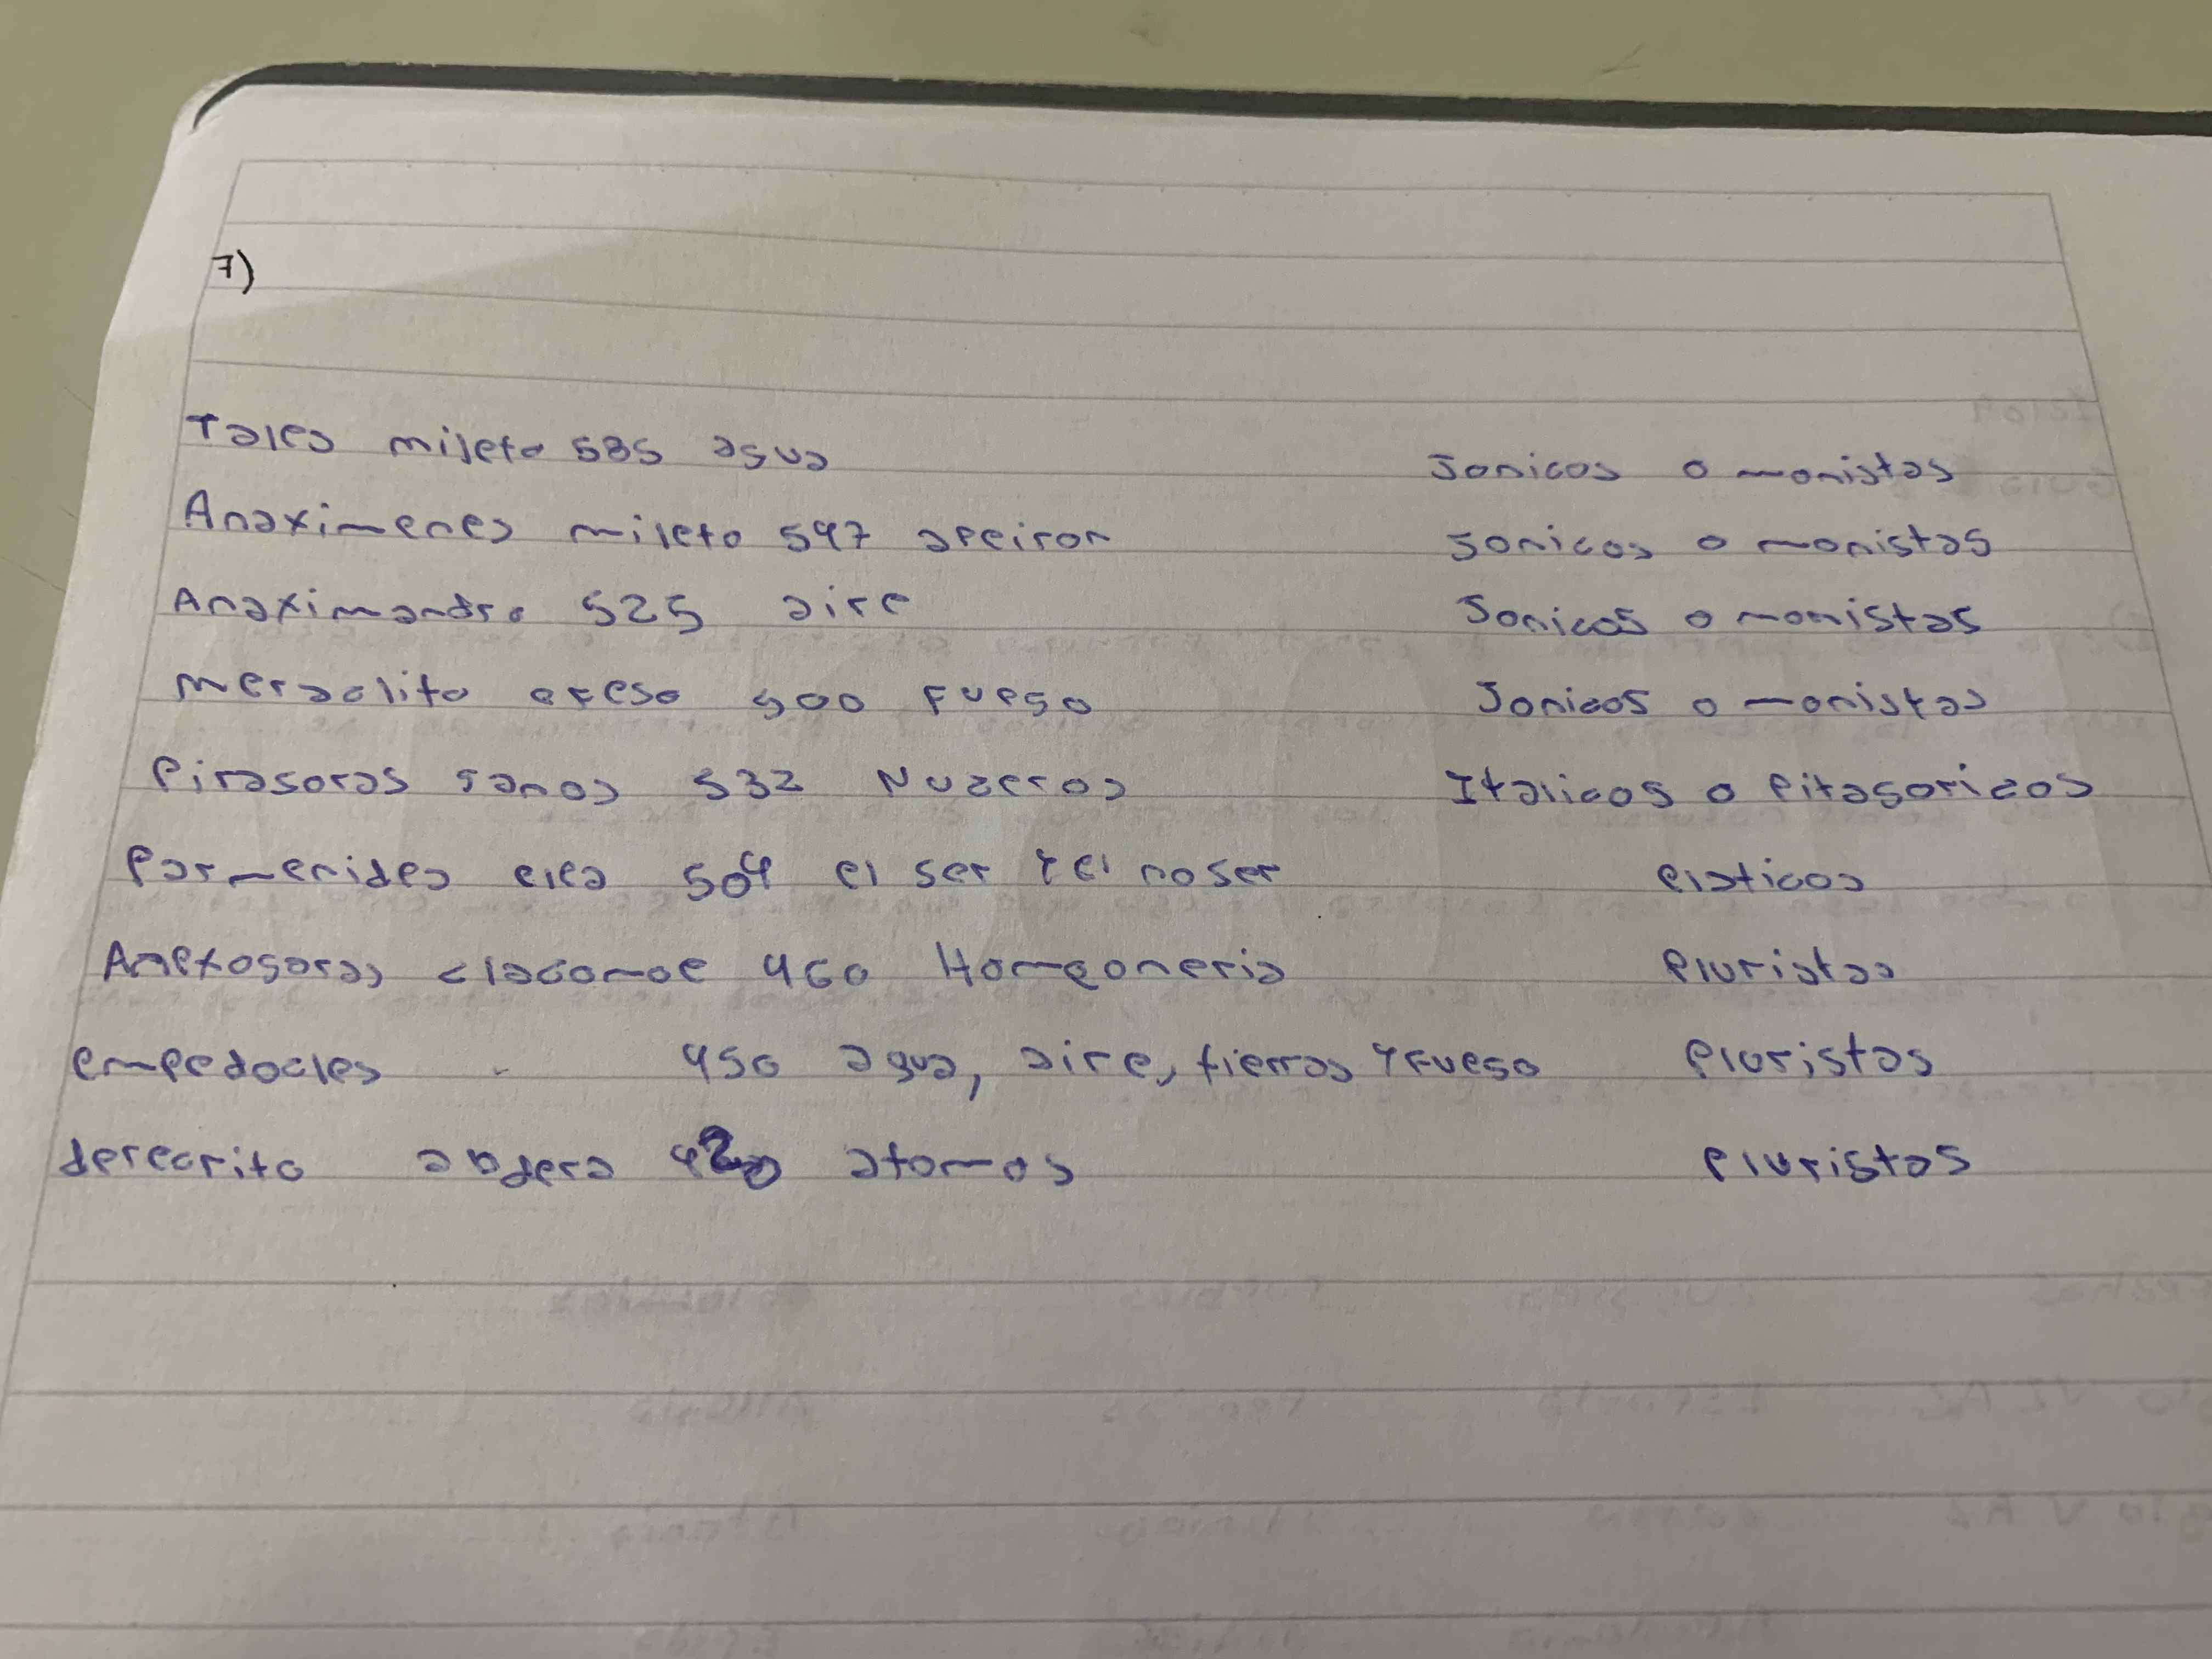 7)
Tales mileto 585 agua Jonicos o monistas
Anaximenes mileto 547 apeiron Jonicos o monistas
Anaximandro 525 aire Jonicos o monistas
meraclito efeso 500 fuego Jonicos o monistas
Pirasoras sanos 532 Nuzeros Italicos o Pitagoricos
Parmenides elea 504 el ser y el no ser elaticos
Anexogoras clacomoe 460 Homeoneria Pluristas
empedocles 450 agua, aire, tierras y fuego Pluristas
derecrito abdera 420 atomos Pluristas